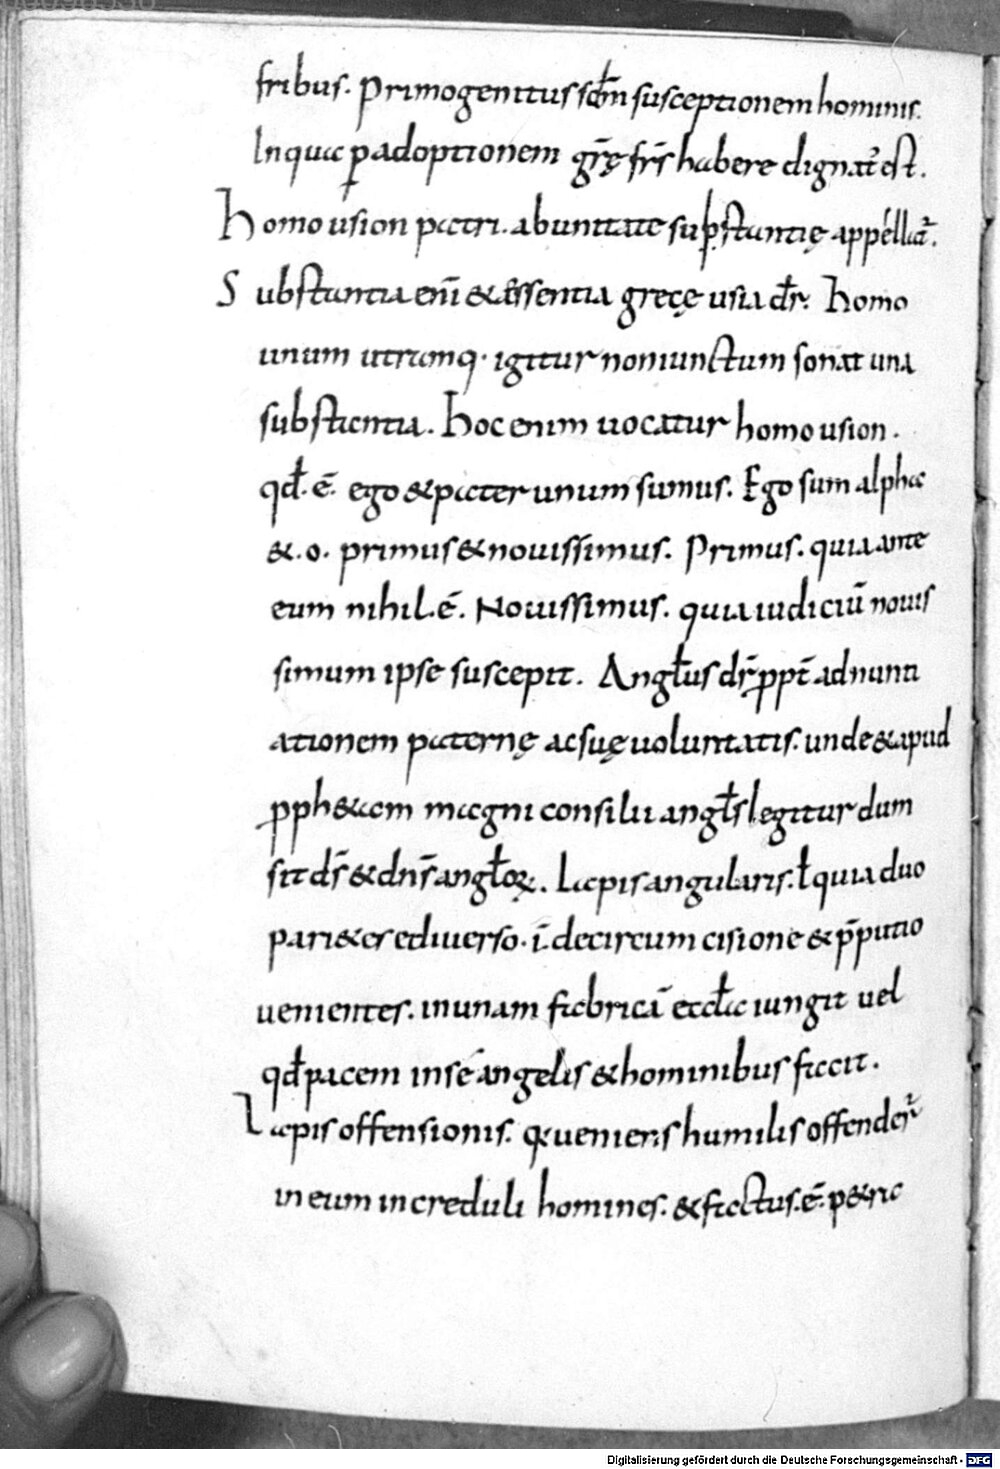 frībus. Primogenitus scđm susceptionem hominis.
In qua ꝑ adoptionem grę̄ frs̄ habere dignat̄ est.
Homousion patri. ab unitate substantię appellat̄.
Substantia eni̅ & essentia grecę usia dr̄. Homo
unum utrumq· igitur nomiunctum sonat una
substantia. Hoc enim uocatur homousion.
qđ. ē. ego & pater unum sumus. Ego sum alpha
&. o. primus & nouissimus. Primus. quia ante
eum nihil. ē. Nouissimus. quia iudiciū nouis
simum ipse suscepit. Angłus dr̄ ꝓpt̄ adnunti
ationem paternę ac suę uoluntatis. unde & apud
ꝓph&am magni consilii angłs legitur dum
sit ds̄ & dns̄ angłoꝝ. Lapis angularis. ł quia duo
pari&es ediuerso. i̅. de circumcisione & p̄putio
uenientes. in unam fabricā eccłe iungit uel
qđ pacem in se angelis & hominibus facit.
Lapis offensionis. q̄ ueniens humilis offender̄
in eum increduli homines. & factus. ē. p&ra